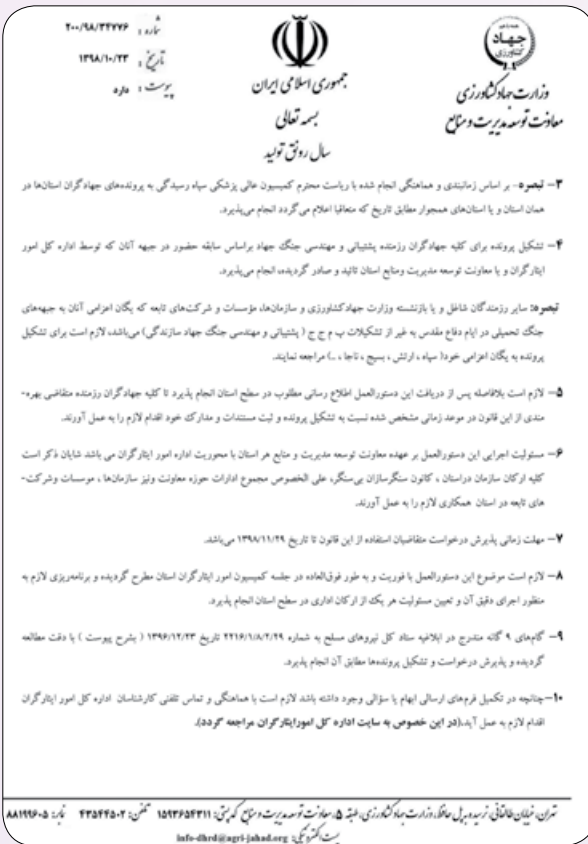 شماره : ۲۰۰/۹۸/۳۴۷۷۶
تاریخ : ۱۳۹۸/۱۰/۲۳
پیوست : دارد
جمهوری اسلامی ایران
بسمه تعالی
سال رونق تولید
جهاد
کشاورزی
وزارت جهاد کشاورزی
معاونت توسعه مدیریت و منابع
۳- تبصره- بر اساس زمانبندی و هماهنگی انجام شده با ریاست محترم کمیسیون عالی پزشکی سپاه رسیدگی به پرونده‌های جهادگران استان‌ها در
همان استان و یا استان‌های همجوار مطابق تاریخ که متعاقبا اعلام می‌گردد انجام می‌پذیرد.
۴- تشکیل پرونده برای کلیه جهادگران رزمنده پشتیبانی و مهندسی جنگ جهاد براساس سابقه حضور در جبهه آنان که توسط اداره کل امور
ایثارگران و یا معاونت توسعه مدیریت ومنابع استان تائید و صادر گردیده، انجام می‌پذیرد.
تبصره: سایر رزمندگان شاغل و یا بازنشسته وزارت جهادکشاورزی و سازمان‌ها، مؤسسات و شرکت‌های تابعه که یگان اعزامی آنان به جبهه‌های
جنگ تحمیلی در ایام دفاع مقدس به غیر از تشکیلات پ م ج ج ( پشتیبانی و مهندسی جنگ جهاد سازندگی) می‌باشد، لازم است برای تشکیل
پرونده به یگان اعزامی خود( سپاه ، ارتش ، بسیج ، ناجا ، ..) مراجعه نمایند.
۵- لازم است بلافاصله پس از دریافت این دستورالعمل اطلاع رسانی مطلوب در سطح استان انجام پذیرد تا کلیه جهادگران رزمنده متقاضی بهره-
مندی از این قانون در موعد زمانی مشخص شده نسبت به تشکیل پرونده و ثبت مستندات و مدارک خود اقدام لازم را به عمل آورند.
۶- مسئولیت اجرایی این دستورالعمل بر عهده معاونت توسعه مدیریت و منابع هر استان با محوریت اداره امور ایثارگران می باشد شایان ذکر است
کلیه ارکان سازمان دراستان ، کانون سنگرسازان بی‌سنگر، علی الخصوص مجموع ادارات حوزه معاونت ونیز سازمان‌ها ، موسسات وشرکت-
های تابعه در استان همکاری لازم را به عمل آورند.
۷- مهلت زمانی پذیرش درخواست متقاضیان استفاده از این قانون تا تاریخ ۱۳۹۸/۱۱/۲۹ می‌باشد.
۸- لازم است موضوع این دستورالعمل با فوریت و به طور فوق‌العاده در جلسه کمیسیون امور ایثارگران استان مطرح گردیده و برنامه‌ریزی لازم به
منظور اجرای دقیق آن و تعیین مسئولیت هر یک از ارکان اداری در سطح استان انجام پذیرد.
۹- گام‌های ۹ گانه مندرج در ابلاغیه ستاد کل نیروهای مسلح به شماره ۲۲۱۶/۱/۸/۲/۲۹ تاریخ ۱۳۹۶/۱۲/۲۳ ( بشرح پیوست ) با دقت مطالعه
گردیده و پذیرش درخواست و تشکیل پرونده‌ها مطابق آن انجام پذیرد.
۱۰-چنانچه در تکمیل فرم‌های ارسالی ابهام یا سؤالی وجود داشته باشد لازم است با هماهنگی و تماس تلفنی کارشناسان اداره کل امور ایثارگران
اقدام لازم به عمل آید.(در این خصوص به سایت اداره کل امورایثارگران مراجعه گردد).
تهران، خیابان طالقانی، نرسیده به پل حافظ، وزارت جهاد کشاورزی، طبقه ۵، معاونت توسعه مدیریت و منابع کد پستی: ۱۵۹۳۶۵۴۳۱۱ تلفن: ۴۳۵۴۴۵۰۲ نمابر: ۸۸۱۹۹۶۰۵
پست الکترونیکی: info-dhrd@agri-jahad.org